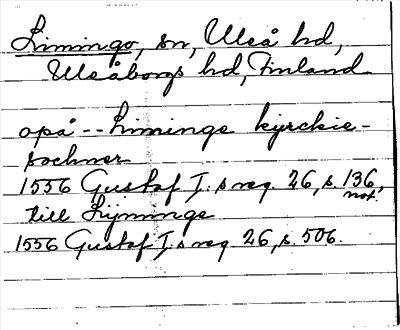 Limingo, sn, Uleå hd,
Uleåborgs hd, Finland
opå -- Liminge kyrckie-
sochner
1556 Gustaf I:s reg. 26, s. 136,
not.
till Lijminge
1556 Gustaf I:s reg 26, s. 506.